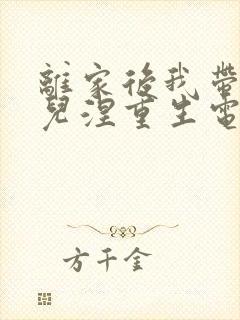 離家後我帶
兒涅重生電
方千金